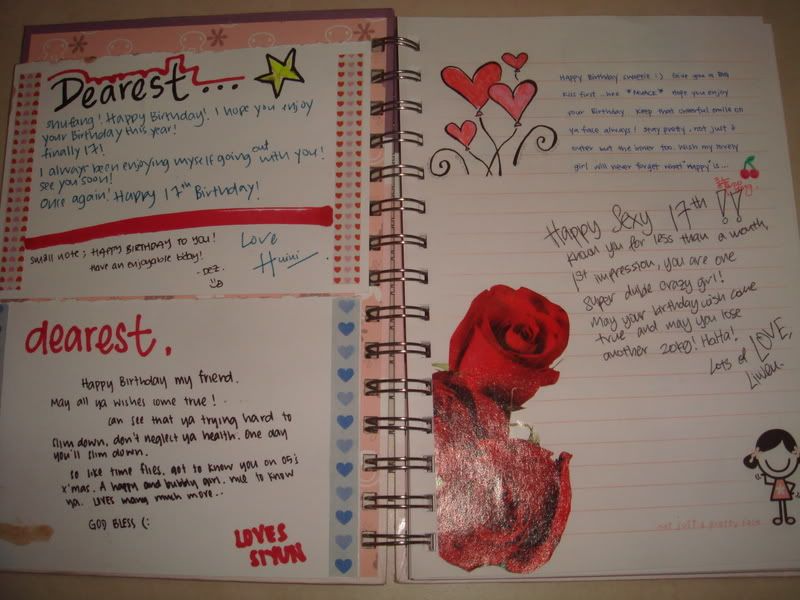 Dearest...
Shufang! Happy Birthday! I hope you enjoy
your Birthday this year!
finally 17!
I always been enjoying myself going out with you!
see you soon!
Once again! Happy 17th Birthday!
Love
Huini
small note; HAPPY BIRTHDAY TO YOU!
have an enjoyable bday!
-DEZ.
dearest.
Happy Birthday my friend.
May all ya wishes come true!
can see that ya trying hard to
slim down, don't neglect ya health. One day
you'll slim down.
so like time flies. got to know you on 05's
x'mas. A happy and bubbly girl. nice to know
ya. LOVES many much more..
GOD BLESS (:
LOVES
SIYUN
Happy Birthday sweetie :) Give you a Big
Kiss first... Hope you enjoy
your Birthday. Keep that cheerful smile on
ya face always! Stay pretty, not just the
outer but the inner too. Wish my lovely
girl will never forget what "happy" is...
Happy Sexy 17th!!
Known you for less than a month,
1st impression, you are one
super duble crazy girl!
May your birthday wish come
true and may you lose
another 20kg! Haha!
Lots of LOVE,
Liwen.